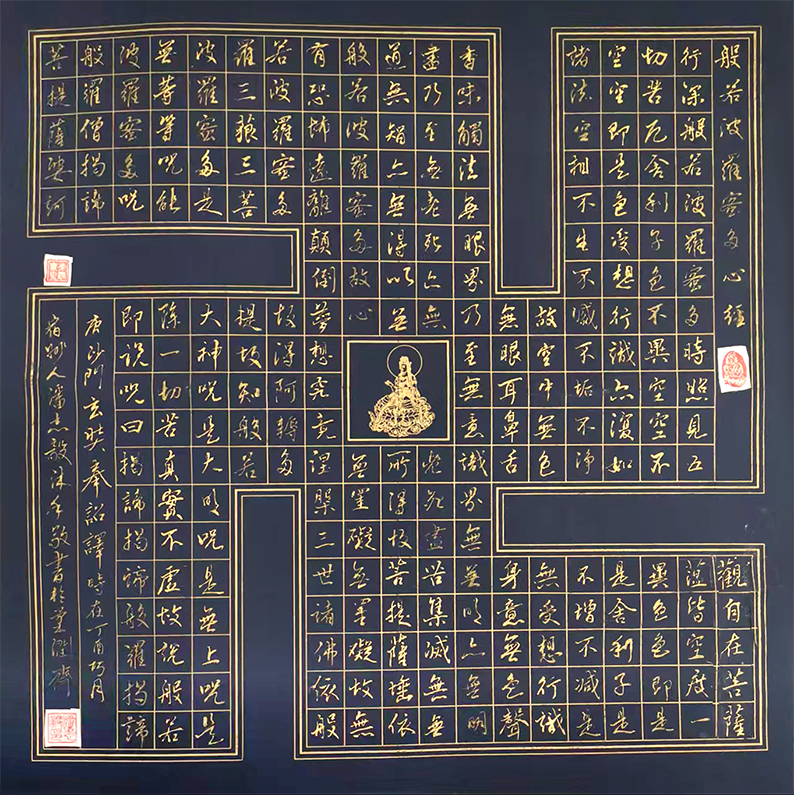 般若波羅蜜多心經
觀自在菩薩
行深般若波羅蜜多時照見五
蘊皆空度一
切苦厄舍利子色不異空空不
異色色即是
空空即是色受想行識亦復如
是舍利子是
諸法空相不生不滅不垢不淨
不增不減是
故空中無色
無受想行識
無眼耳鼻舌
身意無色聲
香味觸法無眼界乃至無意識界無無明亦無無明
盡乃至無老死亦無
老死盡苦集滅無無
道無智亦無得以無
所得故菩提薩埵依
般若波羅蜜多故心
無罣礙無罣礙故無
有恐怖遠離顛倒夢想究竟涅槃三世諸佛依般
若波羅蜜多
故得阿耨多
羅三藐三菩
提故知般若
波羅蜜多是
大神呪是大明呪是無上呪是
無等等呪能
除一切苦真實不虛故說般若
波羅蜜多呪
即說呪曰揭諦揭諦般羅揭諦
般羅僧揭諦
菩提薩婆訶
唐沙門玄奘奉詔譯時在丁酉巧月
宿州人潘志毅沐手敬書於墨潤齋